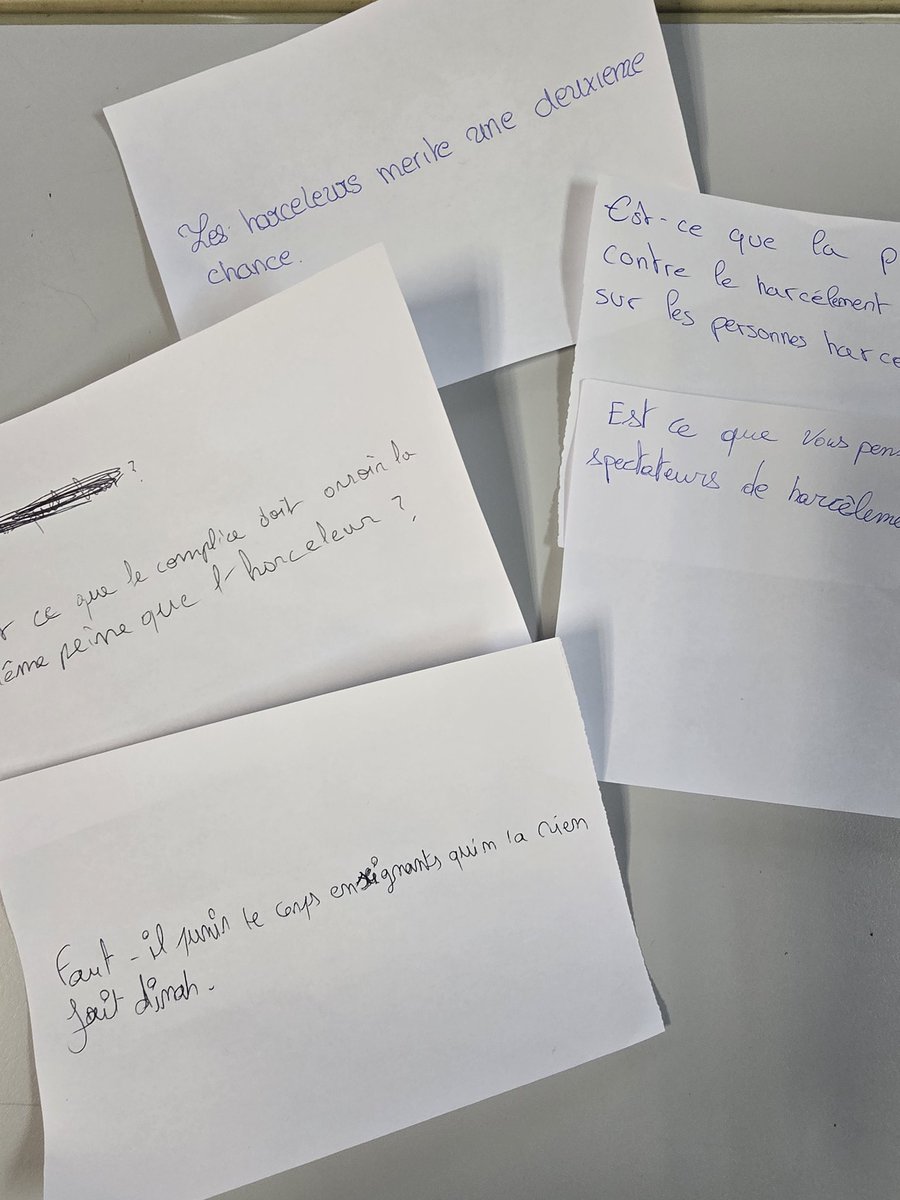 Les harceleurs merite une deuxieme
chance.
Est-ce que la p
contre le harcélement
sur les personnes harce
Est ce que vous pens
spectateurs de harcèleme
?
ce que le complice doit avoir la
ême peine que l'harceleur ?
Faut-il punir le corps enseignants qui n la rien
fait dinah.